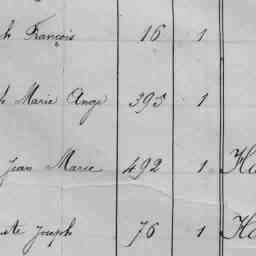 h François 16 1
h Marie Ange 395 1
Jean Marie 492 1 Ka
ste Joseph 76 1 Ka